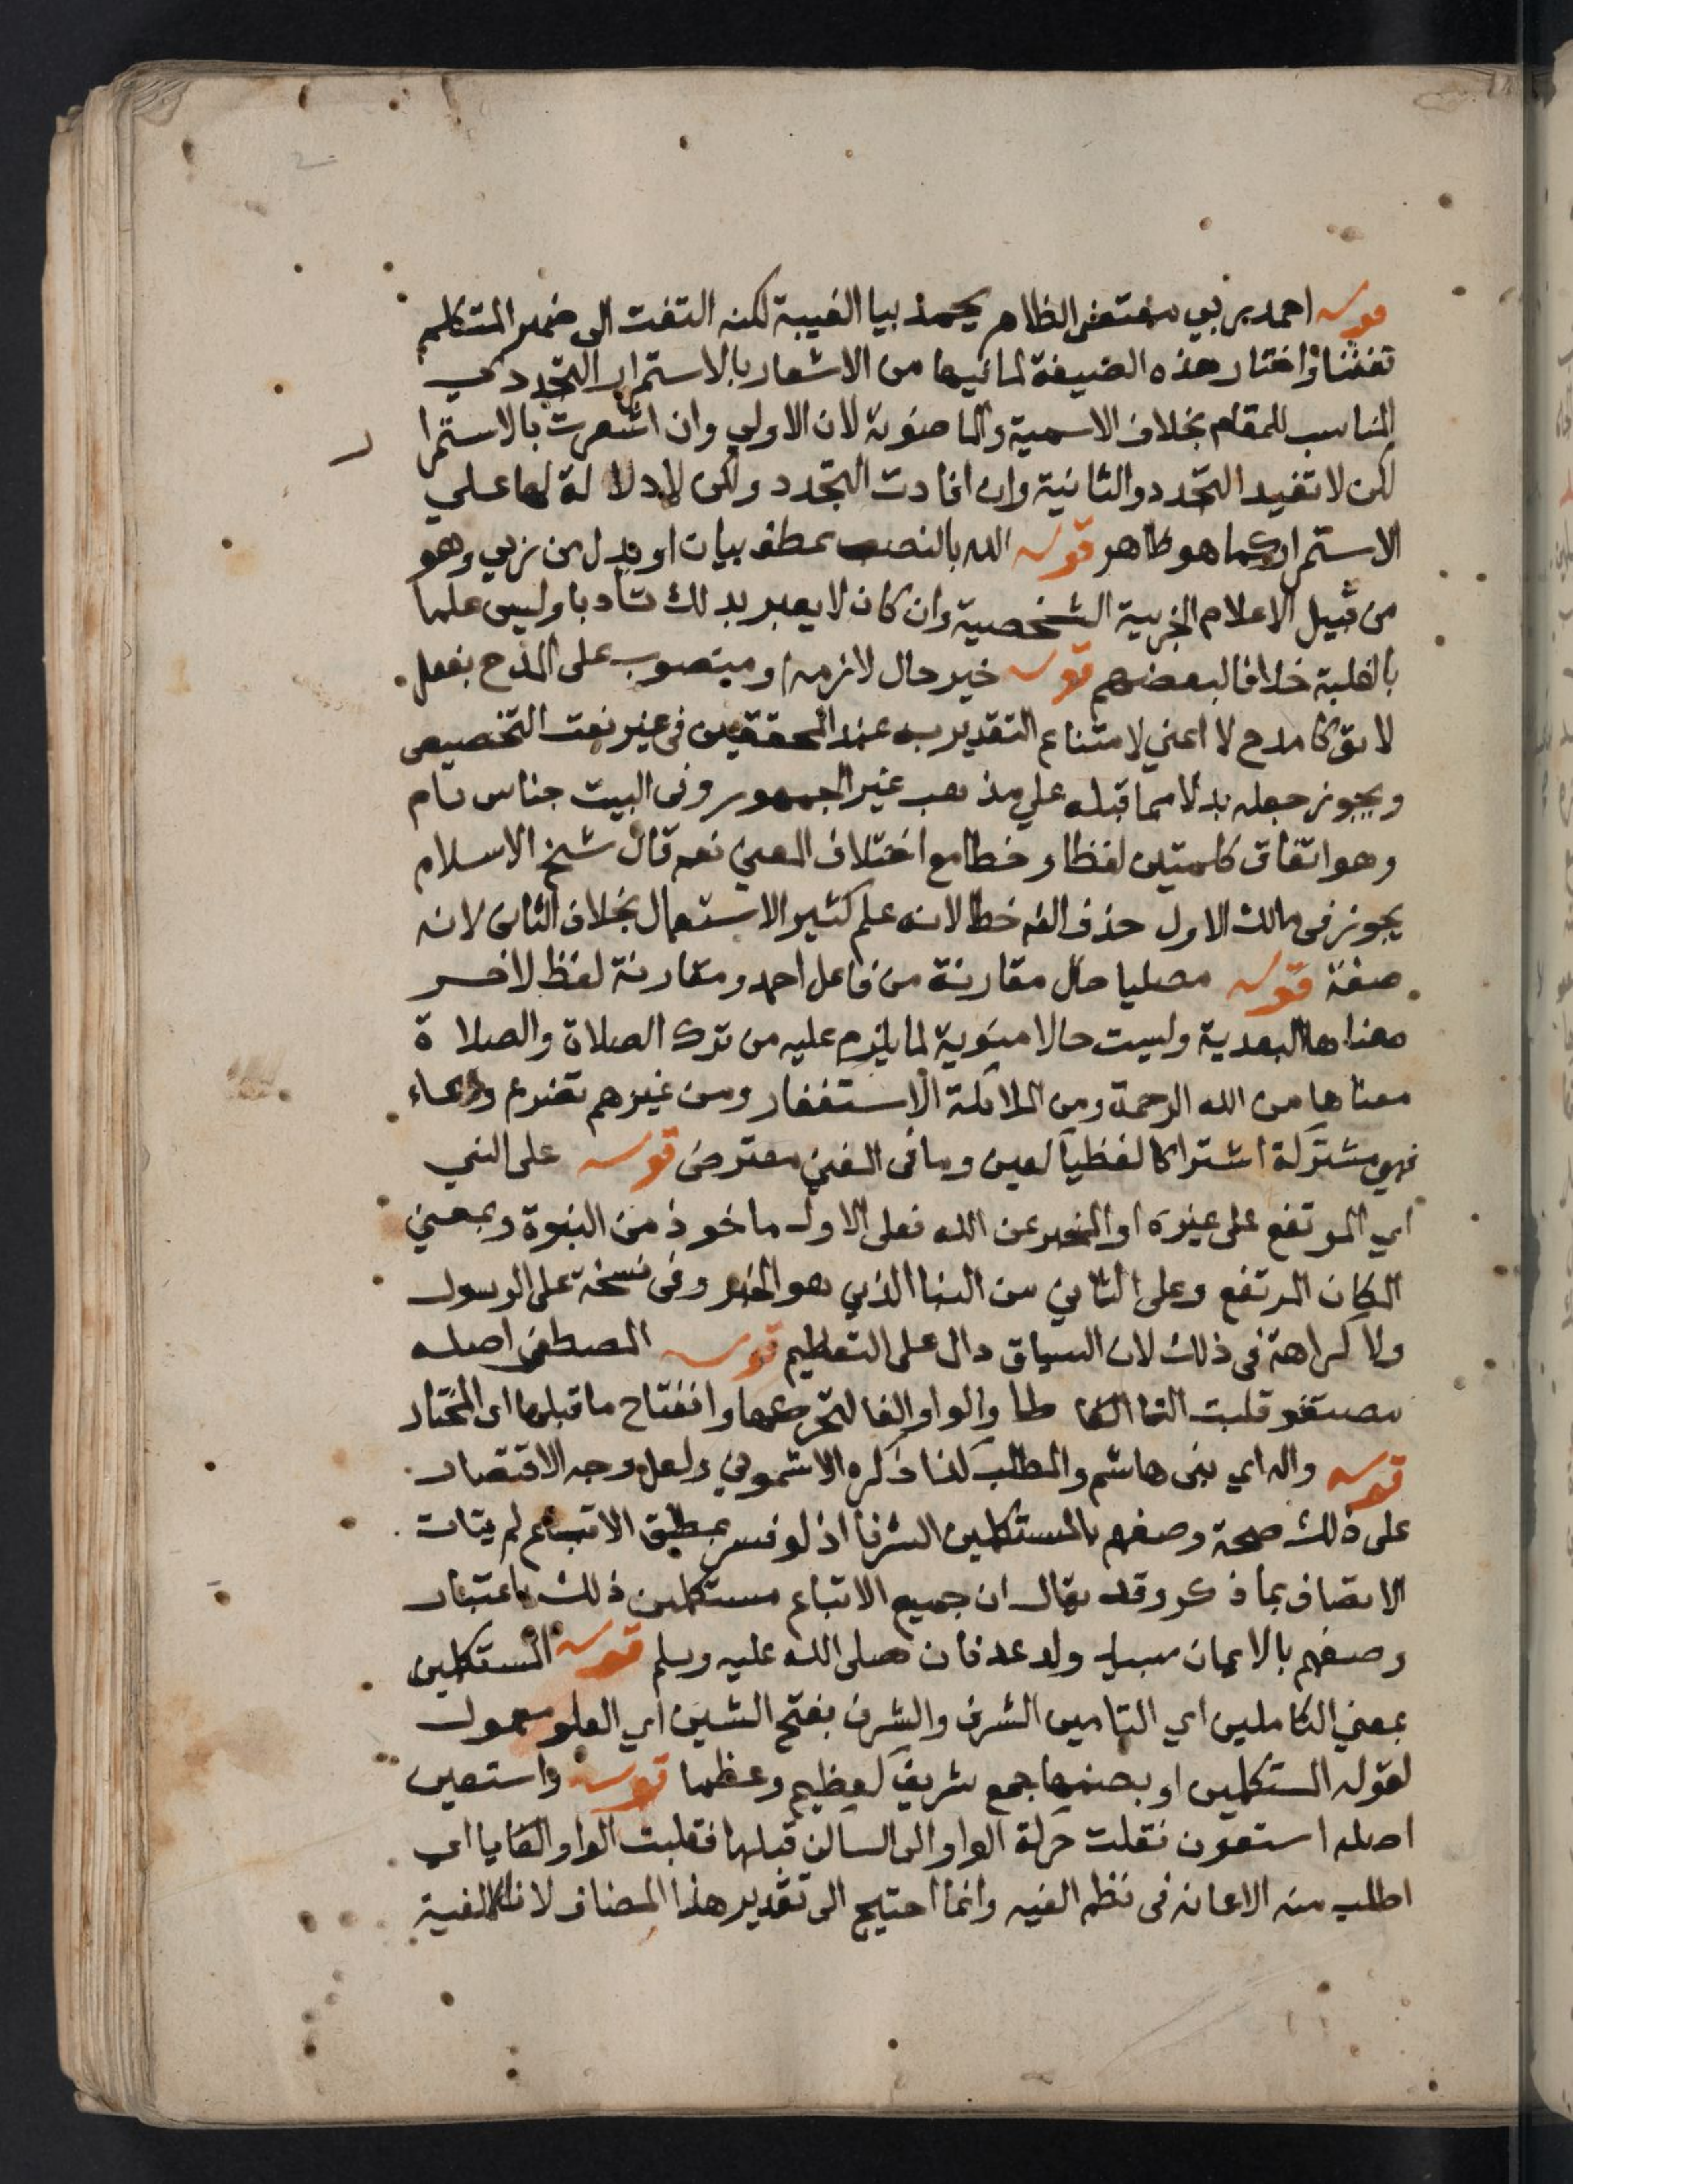 قوله احمد ربي مقتضى الظاهر يحمد بيا الغيبة لكنه التفت الى ضمير المتكلم
تفننا واختار هذه الصيغة لما فيها من الاشعار بالاستمرار التجددي
المناسب للمقام بخلاف الاسمية والماضوية لان الاولي وان اشعرت بالاستمرا ر
لكن لا تفيد التجدد والثانية وان افادت التجدد ولكن لا دلالة لها علي
الاستمرار كما هو ظاهر قوله الله بالنصب عطف بيان او بدل من ربي وهو
من قبيل الاعلام الجزيية الشخصية وان كان لا يعبر بذلك تأدبا وليس علما
بالغلبة خلافا لبعضهم قوله خير حال لازمه او منصوب على المدح بفعل
لايق كامدح لا اعني لامتناع التقدير به عند المحققين في غير نعت التخصيص
ويجوز جعله بدلا مما قبله علي مذهب غير الجمهور وفي البيت جناس تام
وهو اتفاق كلمتين لفظا وخطا مع اختلاف المعنى نعم قال شيخ الاسلام
يجوز في مالك الاول حذف الفه خطا لانه علم كثير الاستعمال بخلاف الثاني لانه
صفة قوله مصليا حال مقارنة من فاعل احمد ومقارنة لفظ لاخر
معناها البعدية وليست حالا منوية لما يلزم عليه من ترك الصلاة والصلا ة
معناها من الله الرحمة ومن الملائكة الاستغفار ومن غيرهم تضرع ودعاء
فهي مشتركة اشتراكا لفظيا كعين وما في المغني معترض قوله على النبي
اي المرتفع على غيره او المخبر عن الله فعلى الاول ماخوذ من النبوة وبمعني
المكان المرتفع وعلى الثاني من النبا الذي هو الخبر وفي نسخة على الرسول
ولا كراهة في ذلك لان السياق دال على التعظيم قوله المصطفى اصله
مصتفو قلبت التا طا والواو الفا لتحركها وانفتاح ما قبلها اي المختار
قوله واله اي بني هاشم والمطلب كذا ذكره الاشموني ولعل وجه الاقتصار
على ذلك صحة وصفهم بالمستكملين الشرفا اذ لو فسر بمطلق الاتباع لم يتات
الاتصاف بما ذكر وقد يقال ان جميع الاتباع مستكملين ذلك باعتبار
وصفهم بالايمان بسيد ولد عدنان صلى الله عليه وسلم قوله المستكملين
بمعنى الكاملين اي التامين الشرف والشرف بفتح الشين اي العلو معمول
لقوله المستكملين او بضمها جمع شريف كعظيم وعظما قوله واستعين
اصله استعون نقلت حركة الواو الى الساكن قبلها فقلبت الواو يا اي
اطلب منه الاعانه في نظم الفيه وانما احتيج الى تقدير هذا المضاف لان الالفية